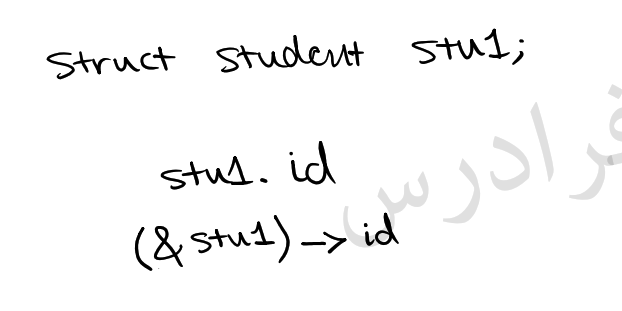 struct student stu1;
stu1.id
(&stu1)->id
فرادرس